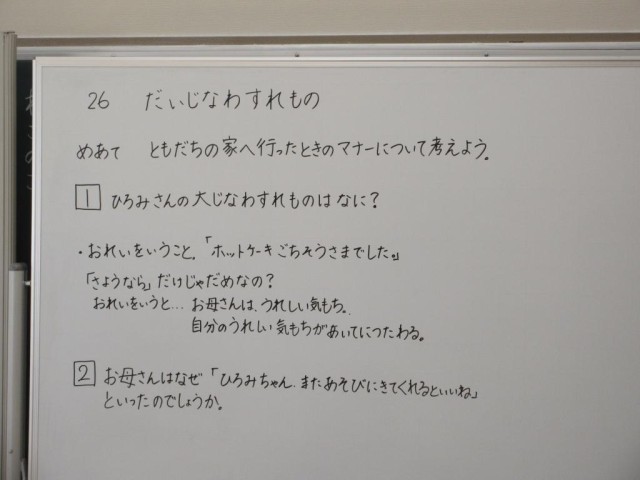 26 だいじなわすれもの
めあて ともだちの家へ行ったときのマナーについて考えよう。
1 ひろみさんの大じなわすれものはなに?
・おれいをいうこと.「ホットケーキごちそうさまでした。」
「さようなら」だけじゃだめなの?
おれいをいうと… お母さんは、うれしい気もち.
自分のうれしい気もちがあいてにつたわる。
2 お母さんはなぜ「ひろみちゃん.またあそびにきてくれるといいね」
といったのでしょうか。